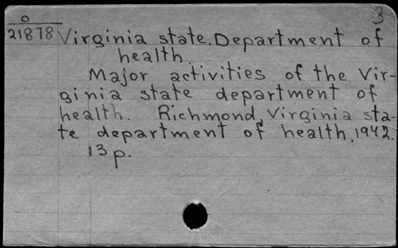 0 3
21878 Virginia state. Department of
health.
Major activities of the Vir-
ginia state department of
health. Richmond, Virginia sta-
te department of health, 1942.
13 p.